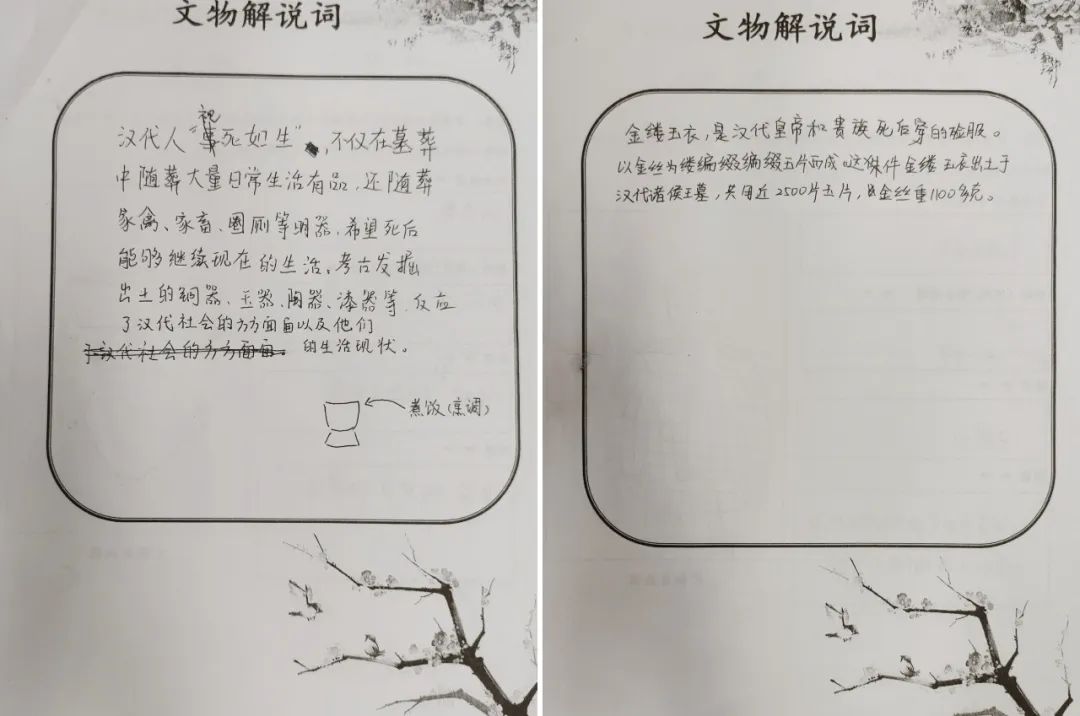 文物解说词
汉代人“视死如生”,不仅在墓葬
中随葬大量日常生活有品,还随葬
家禽、家畜、圈厕等明器,希望死后
能够继续现在的生活。考古发掘
出土的铜器、玉器、陶器、漆器等,反应
了汉代社会的方方面面以及他们
了汉代社会的方方面面。的生活现状。
煮饭(烹调)
文物解说词
金缕玉衣,是汉代皇帝和贵族死后穿的殓服。
以金丝为缕编缀编缀玉片而成。这件金缕玉衣出土于
汉代诸侯王墓,共用近2500片玉片,金丝重1100多克。